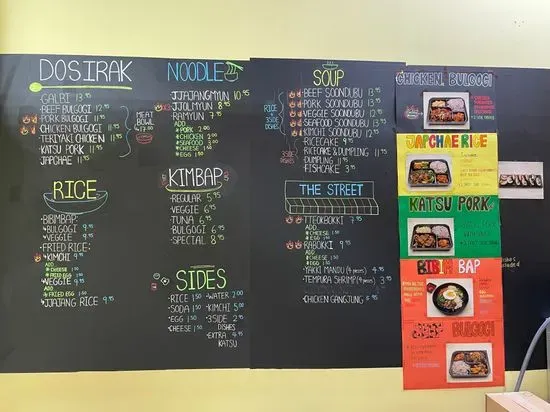 DOSIRAK
·GALBI 13.95
·BEEF BULGOGI 12.95
·PORK BULGOGI 11.95
·CHICKEN BULGOGI 11.95
·TERIYAKI CHICKEN 11.95
·KATSU PORK 11.95
·JAPCHAE 11.95
MEAT
BOWL
RICE
·BIBIMBAP:
·BULGOGI 9.95
·VEGGIE 9.95
·FRIED RICE:
·KIMCHI 9.95
ADD
CHEESE 1.50
FRIED EGG 1.50
·VEGGIE 9.95
ADD
FRIED EGG 1.50
·JJAJANG RICE 9.95
NOODLE
·JJAJANGMYUN 10.95
·JJOLMYUN 9.95
·RAMYUN 7.95
ADD
PORK 2.00
CHICKEN 2.00
SEAFOOD 3.00
CHEESE 1.50
EGG 1.50
KIMBAP
·REGULAR 5.95
·VEGGIE 6.95
·TUNA 6.95
·BULGOGI 6.95
·SPECIAL 8.95
SIDES
·RICE 1.50
·SODA 1.50
·EGG 1.50
·CHEESE 1.50
·WATER 2.00
·KIMCHI 5.00
·3 SIDE DISHES 2.95
·EXTRA KATSU 4.95
SOUP
·BEEF SOONDUBU 13.95
·PORK SOONDUBU 13.95
·VEGGIE SOONDUBU 12.95
·SEAFOOD SOONDUBU 13.95
·KIMCHI SOONDUBU 12.95
·RICECAKE 9.95
·RICECAKE & DUMPLING 11.95
·DUMPLING 11.95
·FISHCAKE 9.95
RICE
+
SIDE
DISHES
3 SIDE
DISHES
THE STREET
·TTEOKBOKKI 7.95
ADD
CHEESE 1.50
EGG 1.50
·RABOKKI 9.95
ADD
CHEESE 1.50
EGG 1.50
·YAKKI MANDU (4 pieces) 4.95
·TEMPURA SHRIMP (4 pieces) 7.95
·CHICKEN GANGJUNG 8.95
CHICKEN BULGOGI
JAPCHAE RICE
KATSU PORK
BIBIM BAP
BULGOGI